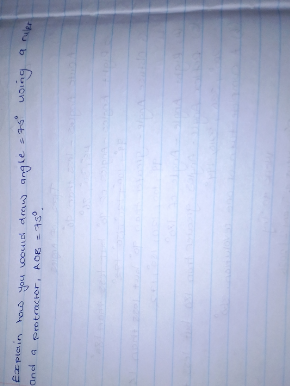 Explain how you would draw angle = 75° using a ruler
and a protractor, AOB = 75°.